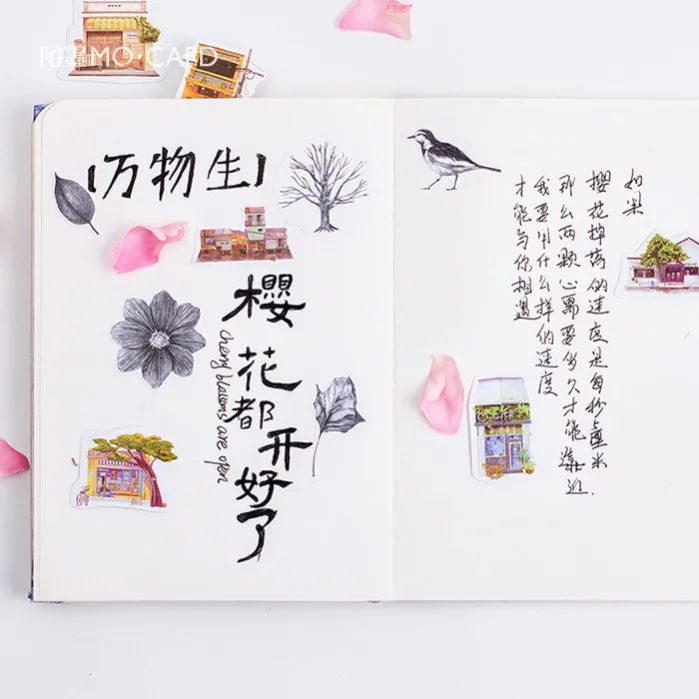 陌墨 MO·CARD
【万物生】
櫻花都开好了
cherry blossoms are open
如果
櫻花掉落的速度是每秒5厘米.
那么两颗心需要多久才能靠近
我要用什么样的速度
才能与你相遇